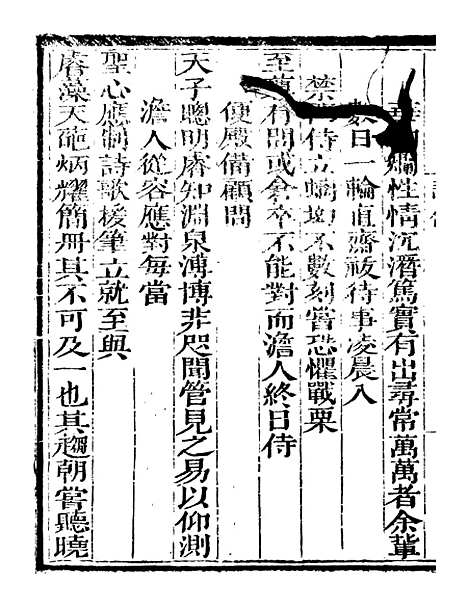 性情沉潛篤實有出尋常萬萬者余輩
數日一輪直齋祓待事凌晨入
禁侍立螭坳不數刻嘗恐懼戰栗
至有問或倉卒不能對而澹人終日侍
便殿備顧問
天子聰明睿知淵泉溥博非咫聞管見之易以仰測
澹人從容應對每當
聖心應制詩歌援筆立就至與
睿藻天葩炳耀簡冊其不可及一也其趨朝嘗聽曉